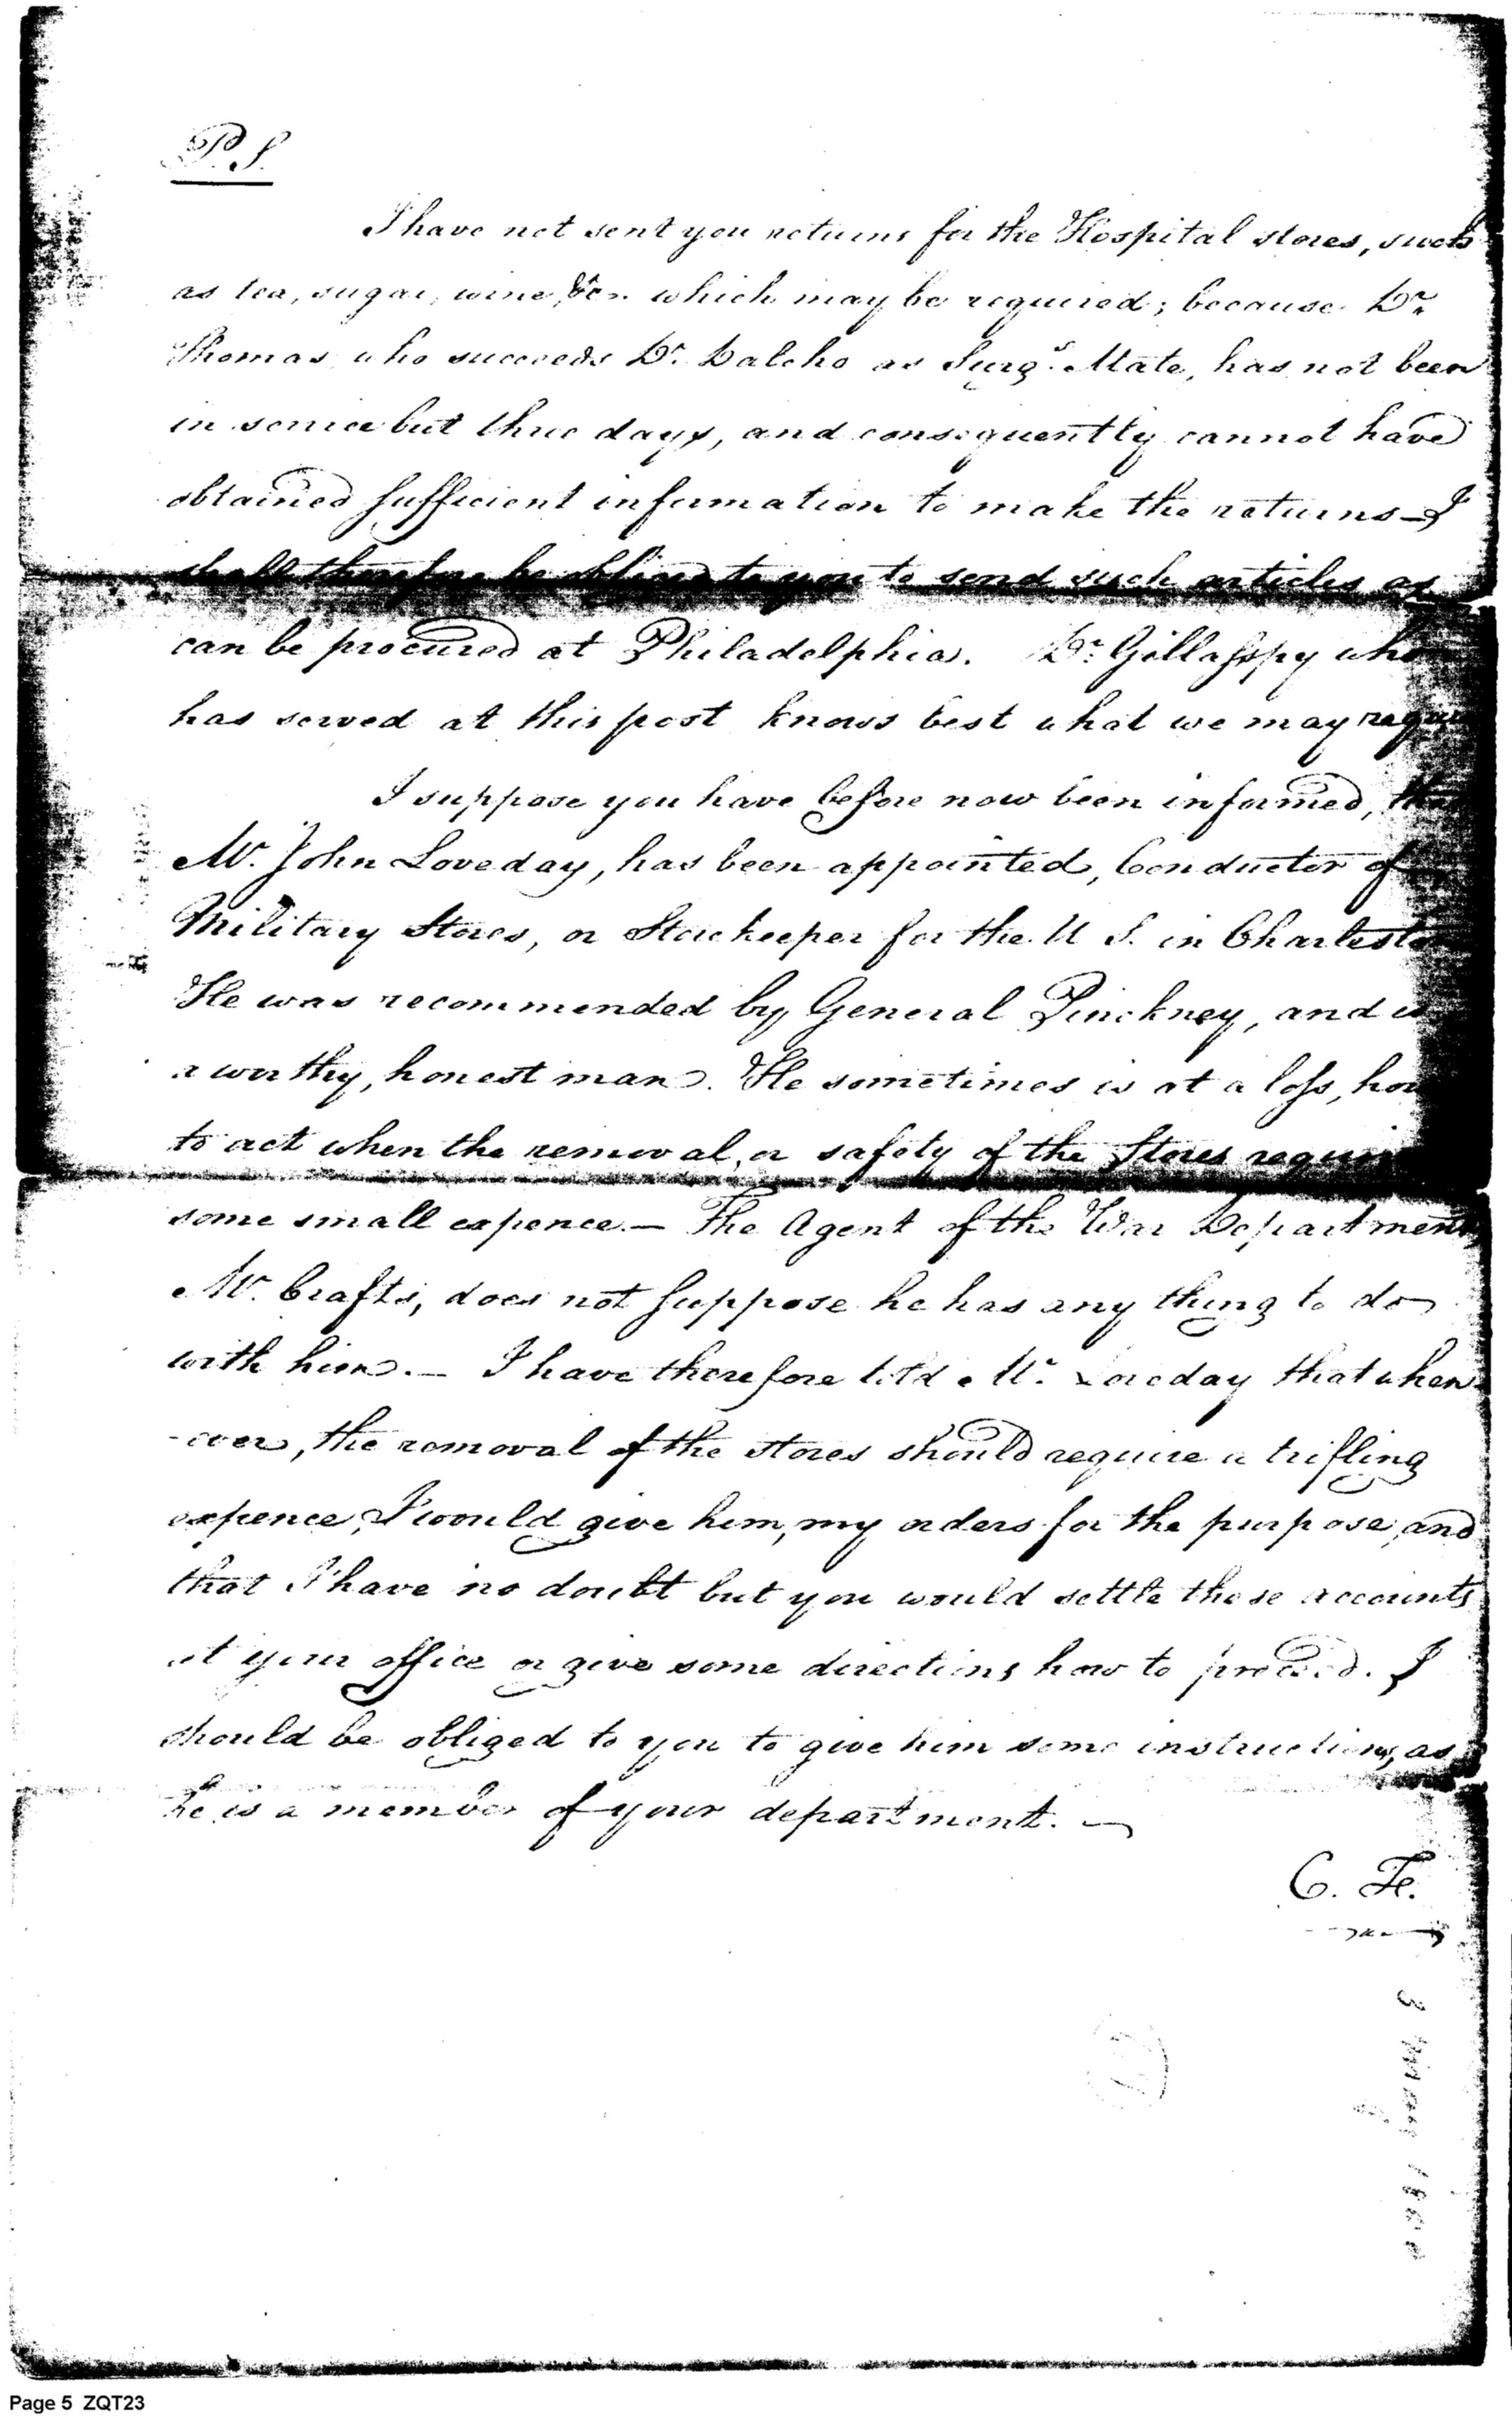 P.S.
I have not sent you returns for the Hospital stores, such
as tea, sugar, wine, &ca. which may be required; because Dr.
Thomas who succeeds Dr. Dalcho as Surgs. Mate, has not been
in service but three days, and consequently cannot have
obtained sufficient information to make the returns — I
shall therefore be obliged to you to send such articles as
can be procured at Philadelphia. Dr. Gillaspy who
has served at this post knows best what we may require
I suppose you have before now been informed, that
Mr. John Loveday, has been appointed, Conductor of
Military Stores, or Storekeeper for the U S. in Charleston
He was recommended by General Pinckney, and is
a worthy, honest man. He sometimes is at a loss, how
to act when the removal, or safety of the Stores require
some small expence. — The Agent of the War Department
Mr. Crafts, does not suppose he has any thing to do
with him. — I have therefore told Mr. Loveday that when
-ever, the removal of the stores should require a trifling
expence, I would give him, my orders for the purpose, and
that I have no doubt but you would settle those accounts
at your office or give some directions how to proceed. I
should be obliged to you to give him some instructions, as
he is a member of your department. —
C. Fr.
3 May 1800
Page 5 ZQT23